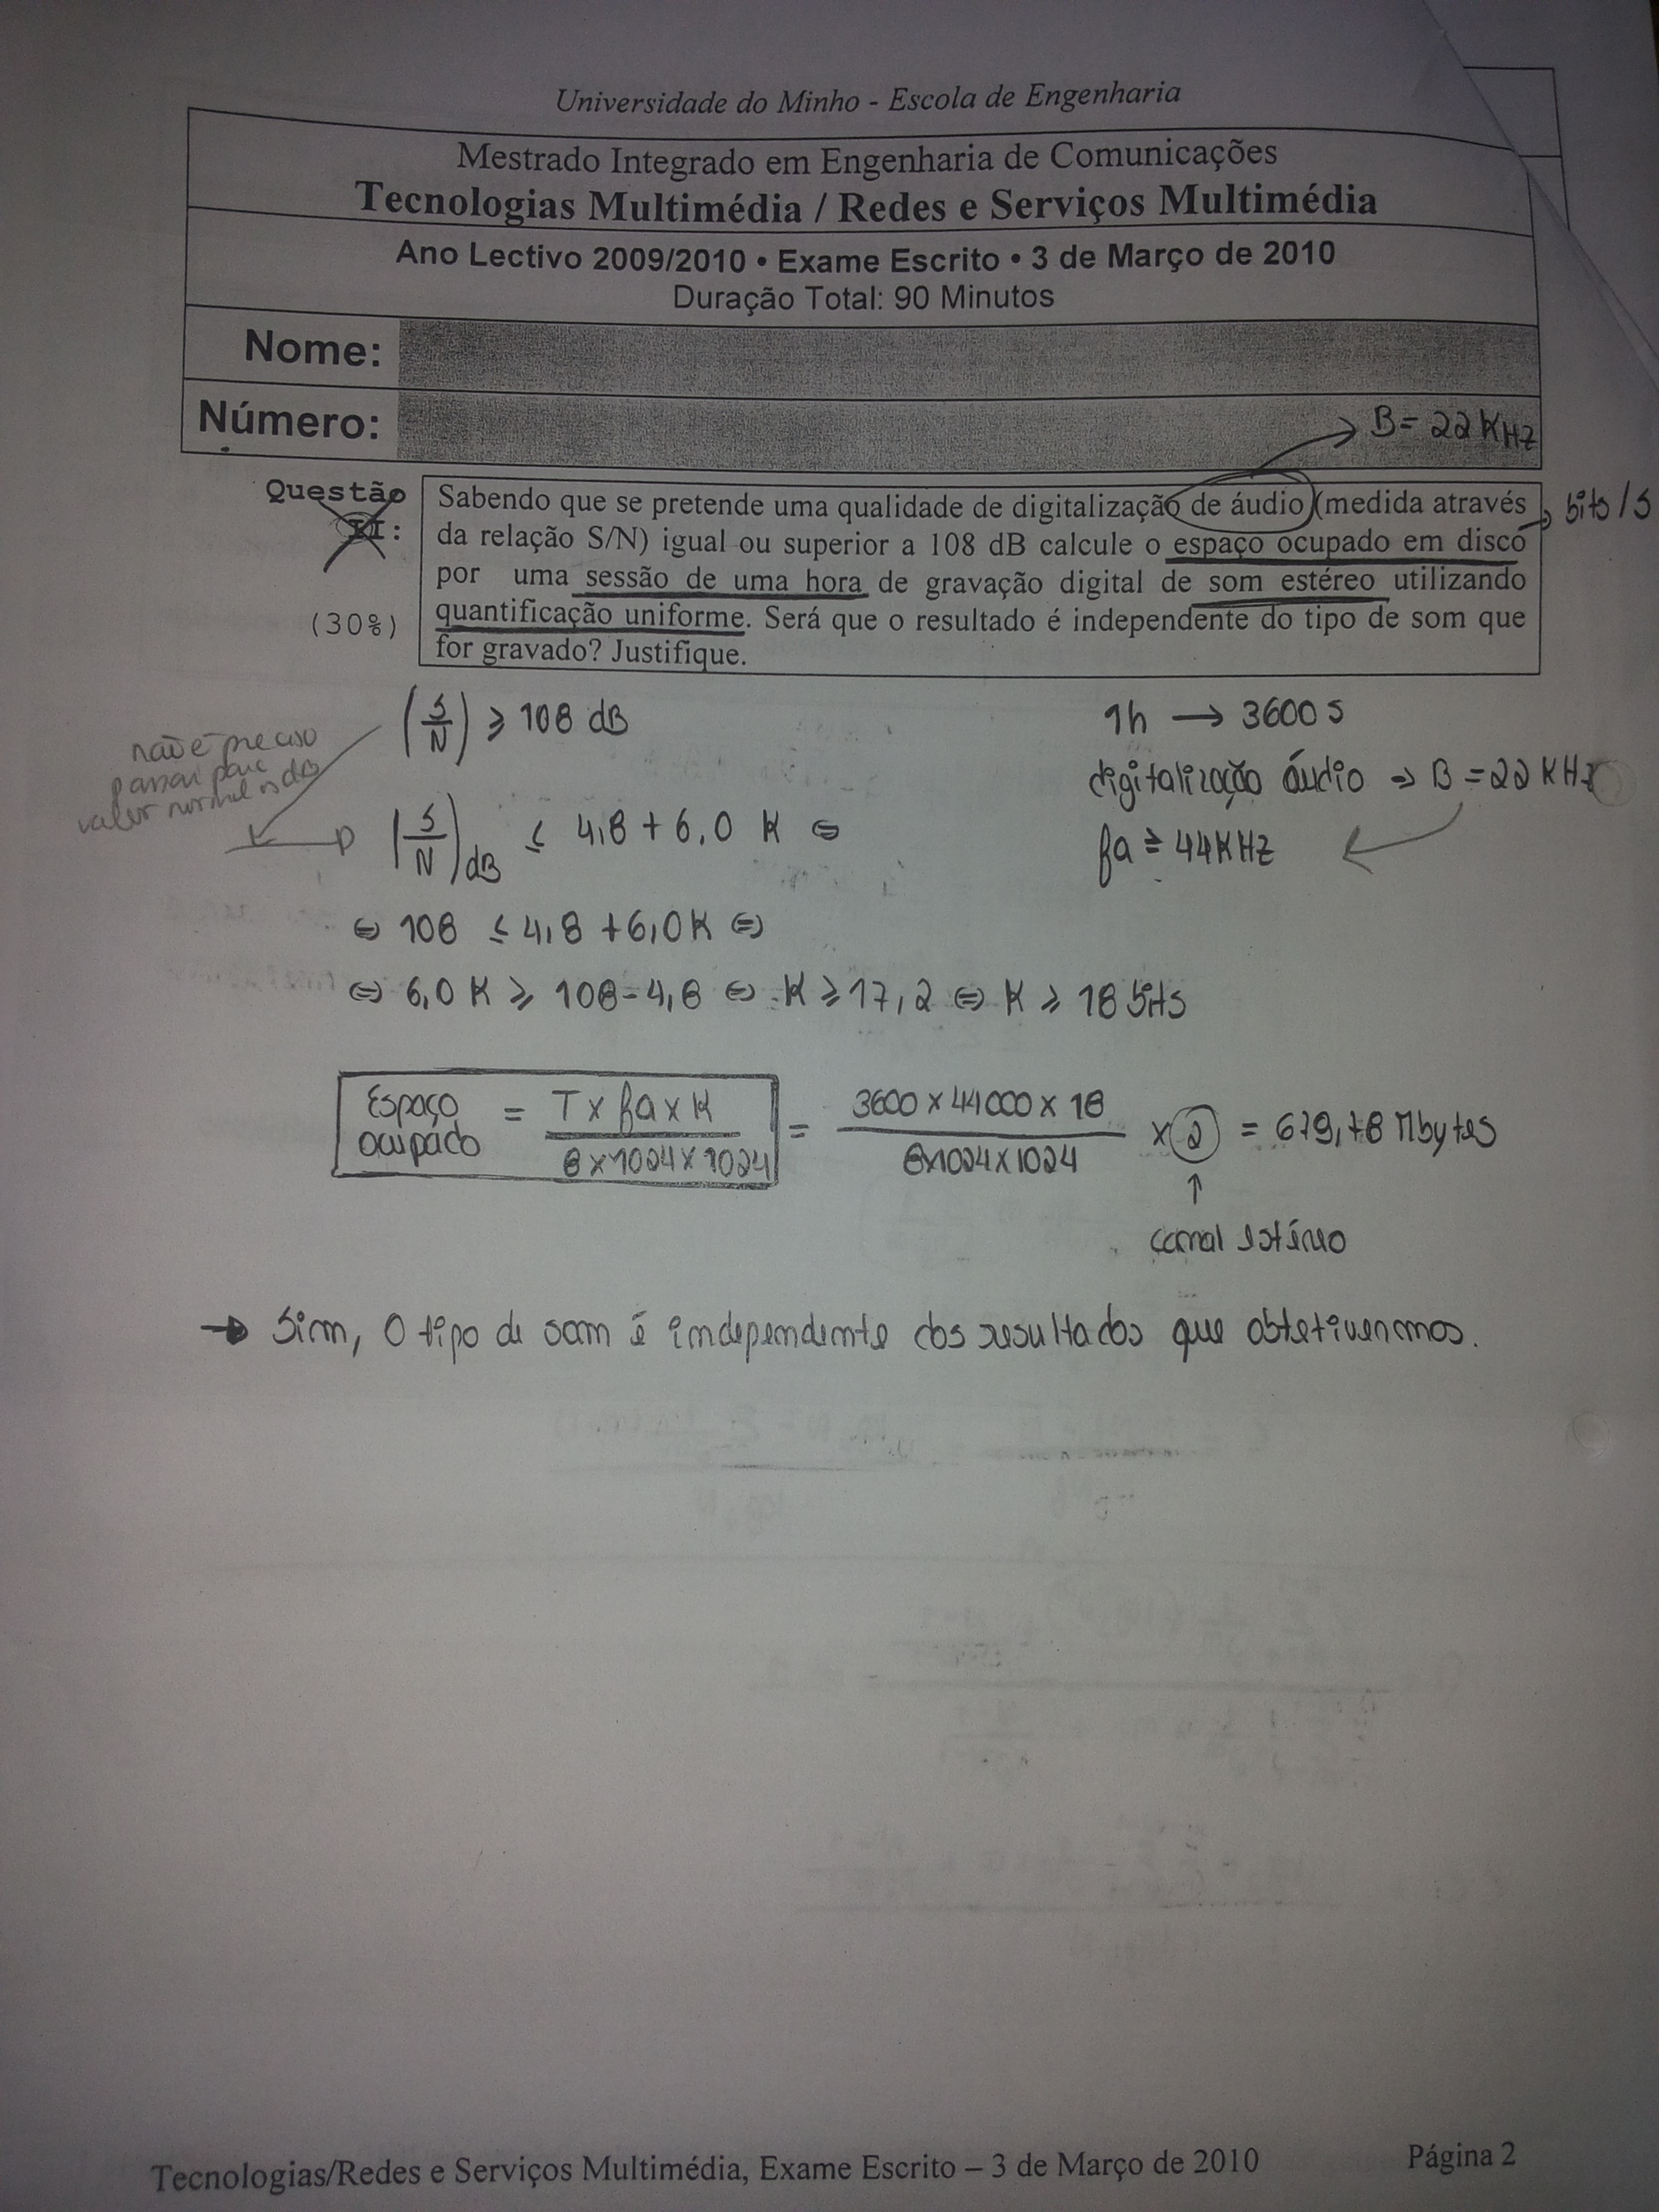 Universidade do Minho - Escola de Engenharia
Mestrado Integrado em Engenharia de Comunicações
Tecnologias Multimédia / Redes e Serviços Multimédia
Ano Lectivo 2009/2010 • Exame Escrito • 3 de Março de 2010
Duração Total: 90 Minutos
Nome:
Número:
B = 22 KHz
Questão
II:
(30%)
Sabendo que se pretende uma qualidade de digitalização de áudio (medida através
da relação S/N) igual ou superior a 108 dB calcule o espaço ocupado em disco
por uma sessão de uma hora de gravação digital de som estéreo utilizando
quantificação uniforme. Será que o resultado é independente do tipo de som que
for gravado? Justifique.
bits/s
(S/N) ⩾ 108 dB
não é preciso
passar para
valor normal os dB
(S/N)dB ≤ 4,8 + 6,0 K ⇔
⇔ 108 ≤ 4,8 + 6,0 K ⇔
⇔ 6,0 K ⩾ 108 - 4,8 ⇔ K ⩾ 17,2 ⇔ K ⩾ 18 bits
1h → 3600 s
digitalização áudio → B = 22 KHz
fa ⩾ 44 KHz
Espaço ocupado = T x fa x K / 8 x 1024 x 1024 = 3600 x 44000 x 18 / 8x1024x1024 x 2 = 679,78 Mbytes
↑
canal estéreo
→ Sim, o tipo de som é independente dos resultados que obtetivermos.
Tecnologias/Redes e Serviços Multimédia, Exame Escrito – 3 de Março de 2010
Página 2